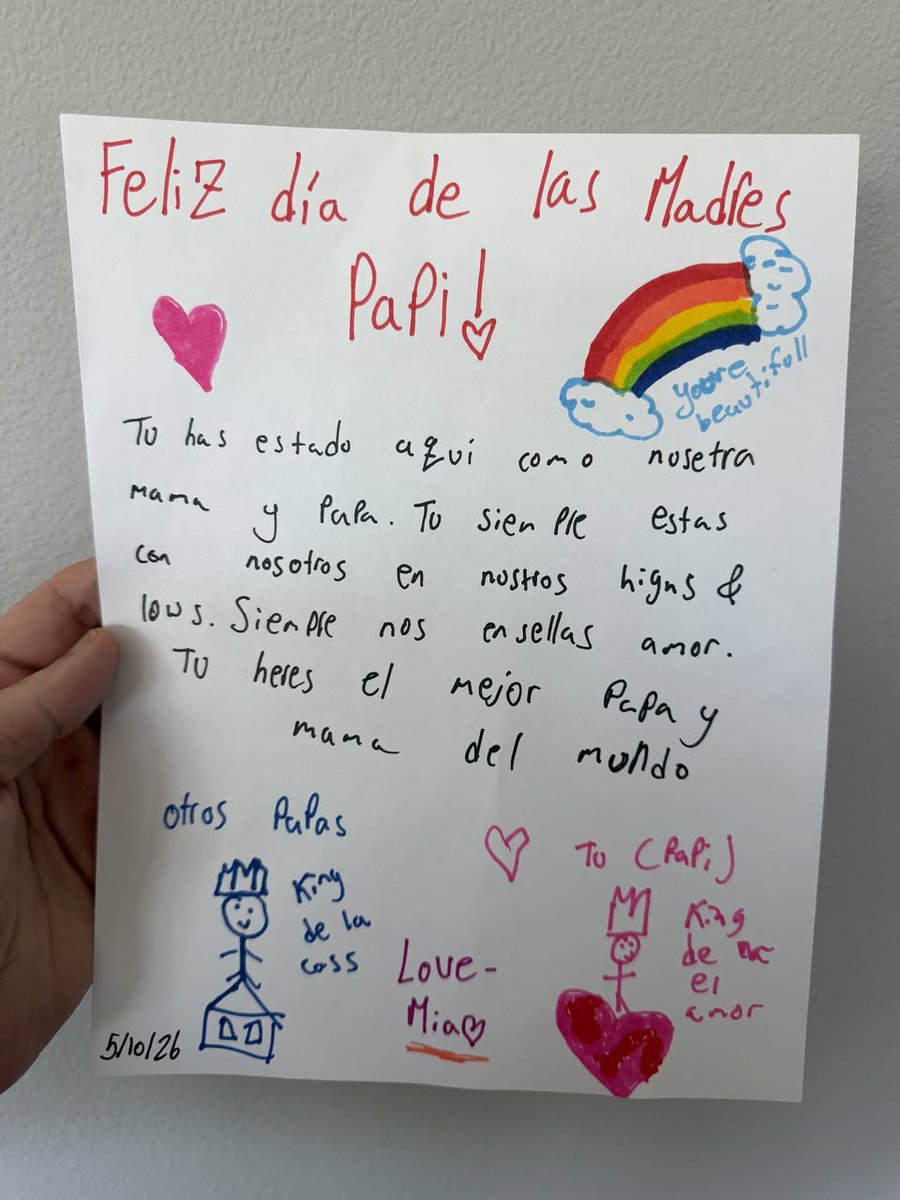 Feliz día de las Madres
Papi!
you're
beautifull
Tu has estado aqui como nusetra
mama y Papa. Tu siempre estas
con nosotros en nustros highs &
lows. Siempre nos ensellas amor.
Tu heres el mejor Papa y
mama del mundo
otros PaPas
King
de la
cass
Tu (Papi)
King
de
el
amor
Love-
Mia
5/10/26